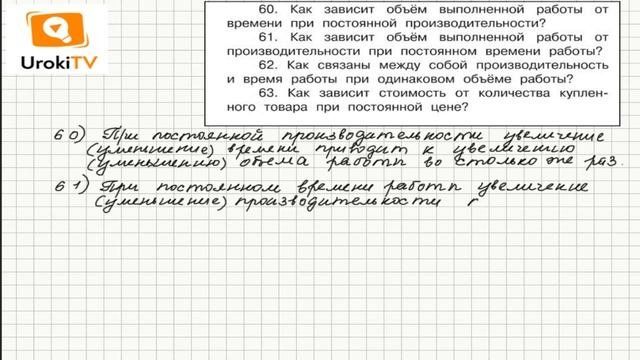 UrokiTV
60. Как зависит объём выполненной работы от
времени при постоянной производительности?
61. Как зависит объём выполненной работы от
производительности при постоянном времени работы?
62. Как связаны между собой производительность
и время работы при одинаковом объёме работы?
63. Как зависит стоимость от количества куплен-
ного товара при постоянной цене?
60) При постоянной производительности увеличение
(уменшение) времени приводит к увеличению
(уменьшению) обема работы во столько же раз.
61) При постоянном времени работы увеличение
(уменьшение) производительности г